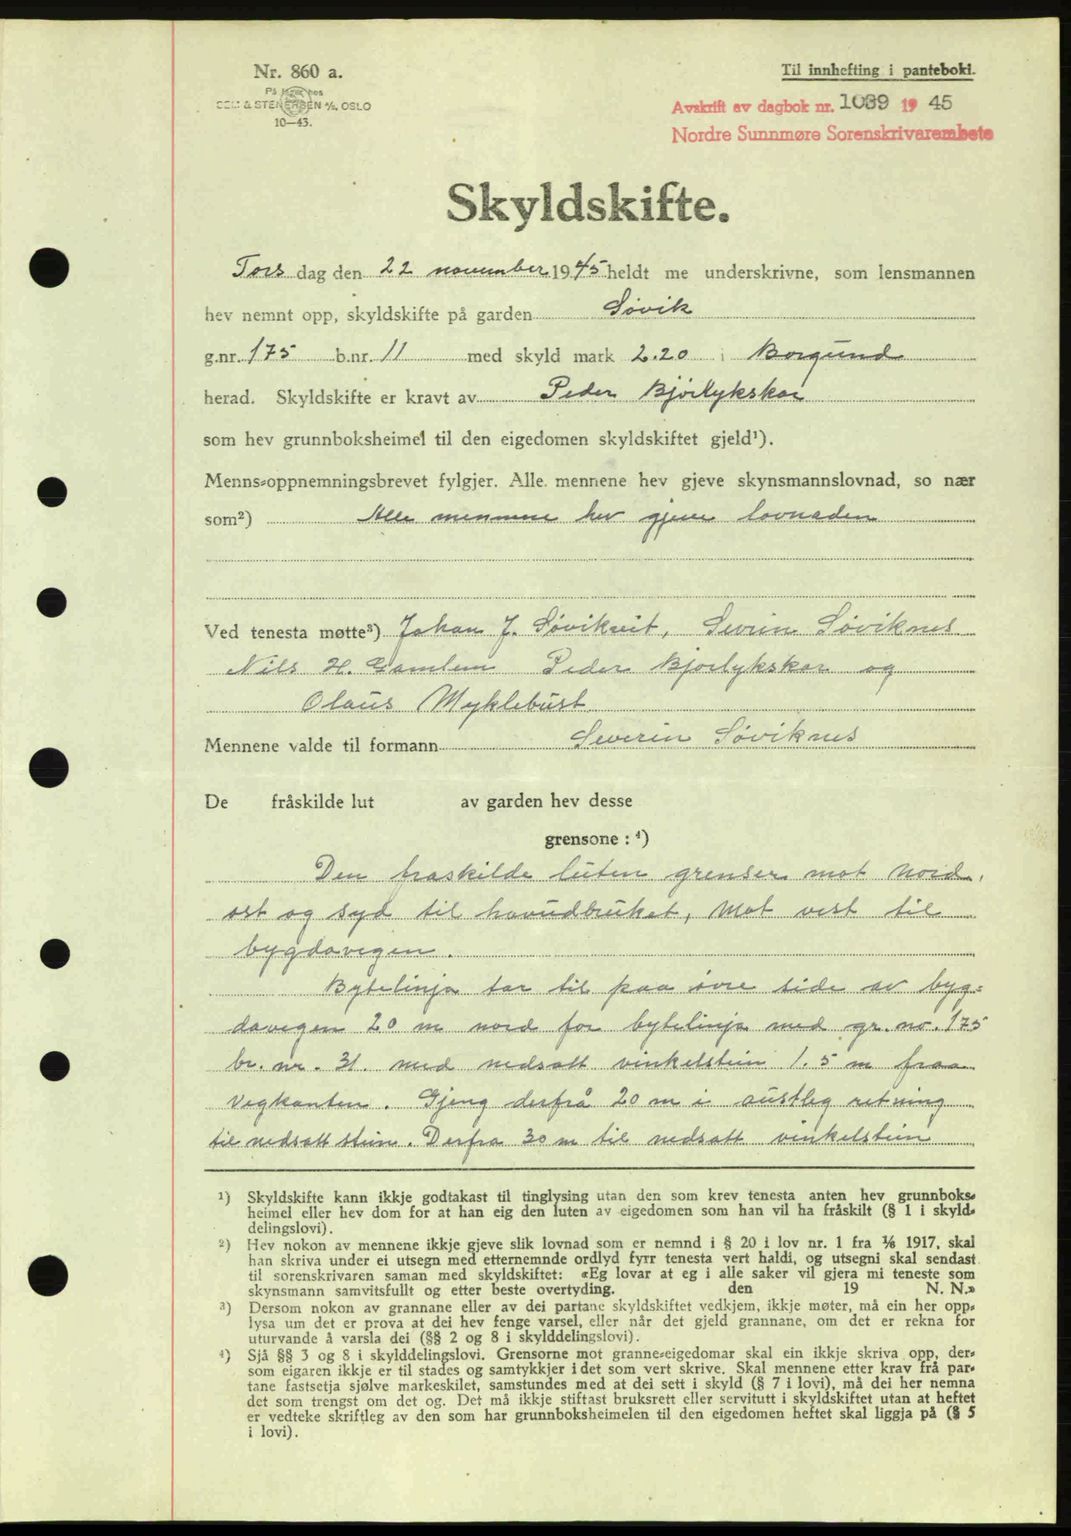 Nr. 860 a.
Til innhefting i panteboki.
SEM & STENERSEN A/S, OSLO
10—43.
Avskrift av dagbok nr. 1089 19 45
Nordre Sunnmøre Sorenskrivarembete
Skyldskifte.
Tors dag den 22 november 1945 heldt me underskrivne, som lensmannen
hev nemnt opp, skyldskifte på garden Søvik
g.nr. 175 b.nr. 11 med skyld mark 2.20 i Borgund
herad. Skyldskifte er kravt av Peder Bjørlykskar
som hev grunnboksheimel til den eigedomen skyldskiftet gjeld¹).
Menns-oppnemningsbrevet fylgjer. Alle mennene hev gjeve skynsmannslovnad, so nær
som²) Alle mennene hev gjeve lovnaden
Ved tenesta møtte³) Johan J. Søvikseit, Severin Søviknes
Nils H. Gamlem Peder Bjørlykskar og
Olaus Myklebust
Mennene valde til formann Severin Søviknes
De fråskilde lut av garden hev desse
grensone : ⁴)
Den fraskilde luten grenser mot Nord,
ost og syd til hovudbruket, Mot vest til
bygdavegen.
Bytelinja tar til paa øvre side av byg-
davegen 20 m nord for bytelinja med gr. no. 175
br. nr. 31. med nedsatt vinkelstein 1.5 m fraa
vegkanten. Gjeng derfrå 20 m i austleg retning
til nedsatt stein. Derfra 30 m til nedsatt vinkelstein
¹) Skyldskifte kann ikkje godtakast til tinglysing utan den som krev tenesta anten hev grunnboks-
heimel eller hev dom for at han eig den luten av eigedomen som han vil ha fråskilt (§ 1 i skyld-
delingslovi).
²) Hev nokon av mennene ikkje gjeve slik lovnad som er nemnd i § 20 i lov nr. 1 fra 1/6 1917, skal
han skriva under ei utsegn med etternemnde ordlyd fyrr tenesta vert haldi, og utsegni skal sendast
til sorenskrivaren saman med skyldskiftet: «Eg lovar at eg i alle saker vil gjera mi teneste som
skynsmann samvitsfullt og etter beste overtyding. den 19 N. N.»
³) Dersom nokon av grannane eller av dei partane skyldskiftet vedkjem, ikkje møter, må ein her opp-
lysa um det er prova at dei hev fenge varsel, eller når det gjeld grannane, om det er rekna for
uturvande å varsla dei (§§ 2 og 8 i skylddelingslovi).
⁴) Sjå §§ 3 og 8 i skylddelingslovi. Grensorne mot granne-eigedomar skal ein ikkje skriva opp, der-
som eigaren ikkje er til stades og samtykkjer i det som vert skrive. Skal mennene etter krav frå par-
tane fastsetja sjølve markeskilet, samstundes med at dei sett i skyld (§ 7 i lovi), må dei her nemna
det som trengst om det og. Det må ikkje stiftast bruksrett eller servitutt i skyldskiftet utan at heftet
er vedteke skriftleg av den som har grunnboksheimelen til den eigedomen heftet skal liggja på (§ 5
i lovi).